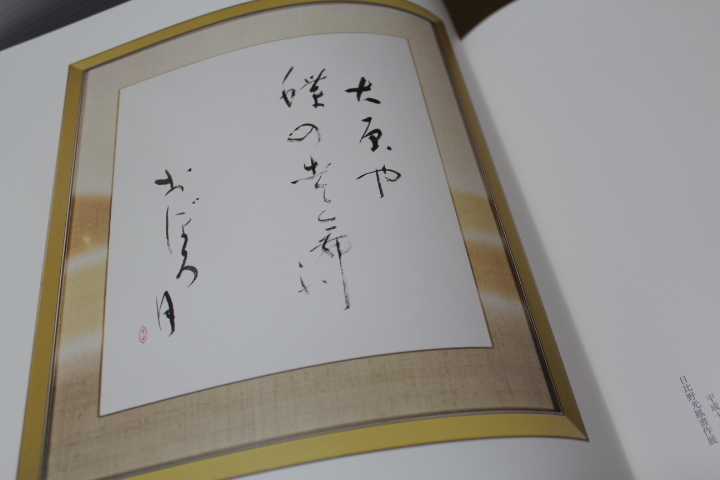 大原や
蝶の出て舞ふ
おぼろ月
平成
日比野光鳳書作展